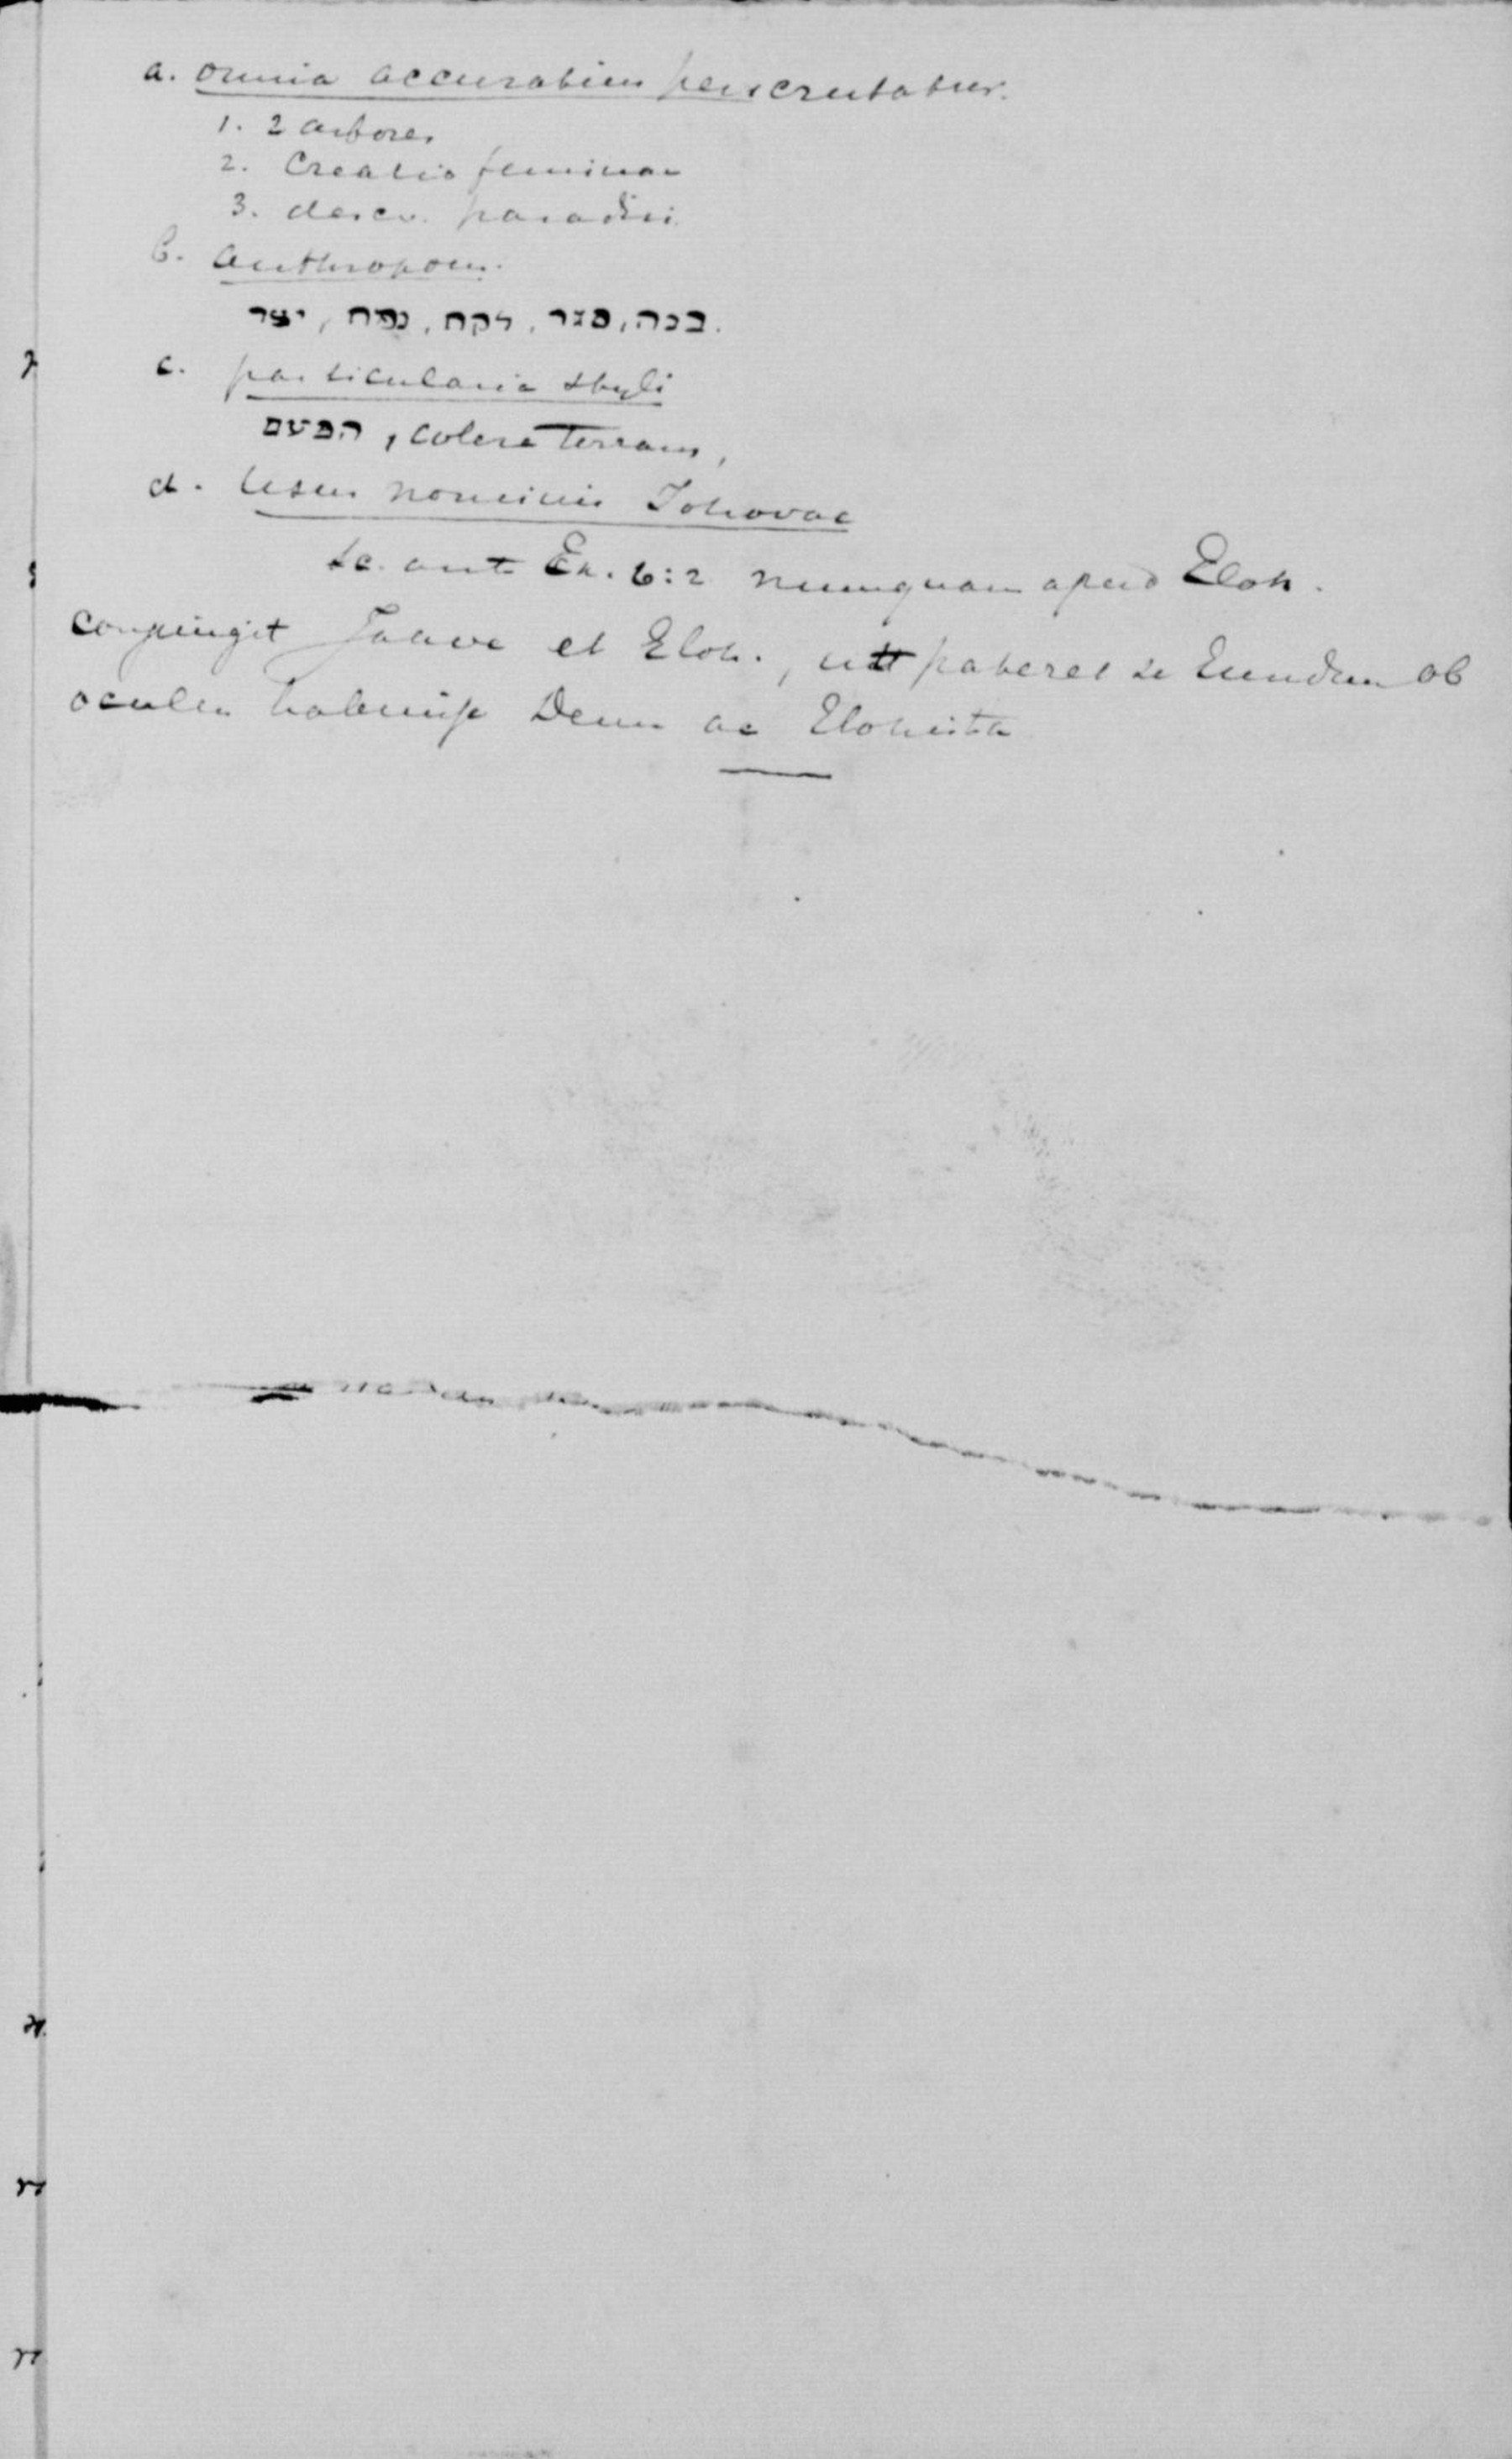 a. omnia accuratius perscrutatur.
1. 2 arbores
2. Creatio feminae
3. descr. paradisi
b. anthropom.
בנה, סגר, לקח, נפח, יצר.
c. particularia styli
הפעם, colere terram,
d. Usus nominis Jehovae
sc. ante Ex. 6:2 numquam apud Eloh.
conjungit Jaave et Eloh., ut pateret se eundem ob
oculos habuisse Deum ac Elohista